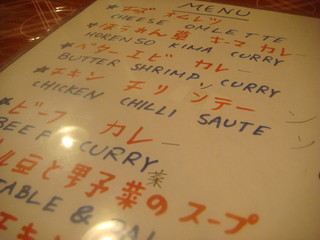 MENU
★チーズ オムレツ
CHEESE OMLETTE
★ほうれん草 キーマ カレー
HORENSO KIMA CURRY
★バター エビ カレー
BUTTER SHRIMP CURRY
★チキン チリ ソンテー
CHICKEN CHILLI SAUTE
★ビーフ カレー
BEEF CURRY
豆と野菜のスープ
TABLE &
チキン